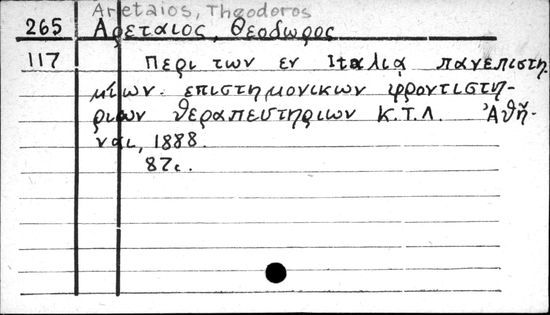 Aretaios, Theodoros
265 Αρεταιος, Θεοδωρος
117 Περι των εν Ιταλιᾳ πανεπιστη
μίων. επιστημονικων φροντιστη-
ριων θεραπευτηριων Κ.Τ.Λ. Ἀθῆ-
ναι, 1888.
87c.